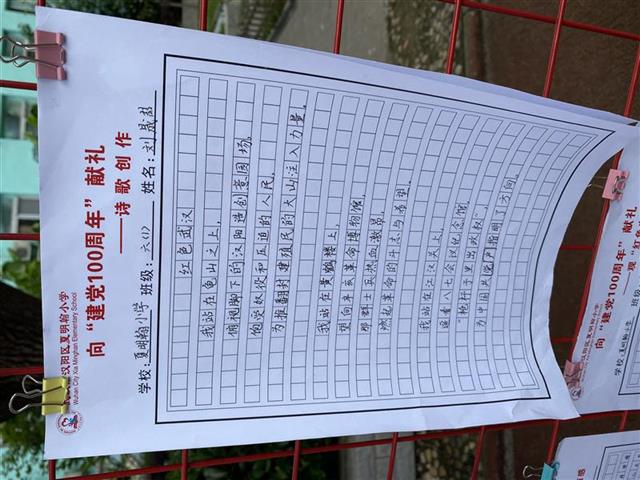 汉阳区夏明翰小学
Wuhan City Xia Minghan Elementary School
向“建党100周年”献礼
——诗歌创作
学校:夏明翰小学 班级:六(1) 姓名:刘晟君
红色武汉
我站在龟山之上,
俯视脚下的汉阳造创意园场。
饱受奴役和压迫的人民,
为推翻封建殖民的大山注入力量。
我站在黄鹤楼上,
望向辛亥革命博物馆,
那群士兵热血激昂,
燃起革命的斗志与希望。
我站在江汉关上,
遥看八七会议纪念馆,
“枪杆子里出政权”,
为中国共产党指明了方向。
汉阳区夏明翰小学
向“建党100周年”献礼
学校:夏明翰小学